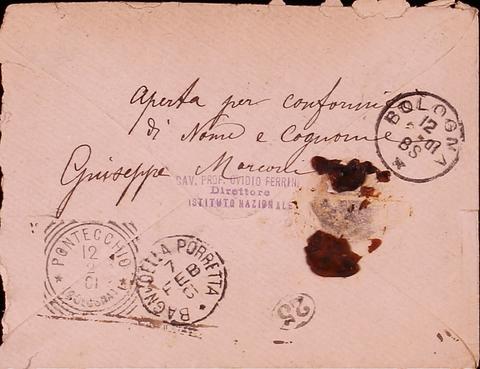 Aperta per conformi
di Nome e Cognome
Giuseppe Marconi
CAV. PROF. OVIDIO FERRINI
Direttore
ISTITUTO NAZIONALE
BOLOGNA
12
01
8S
PONTECCHIO
12
2
01
BOLOGNA
BAGNI DELLA PORRETTA
FEB
25